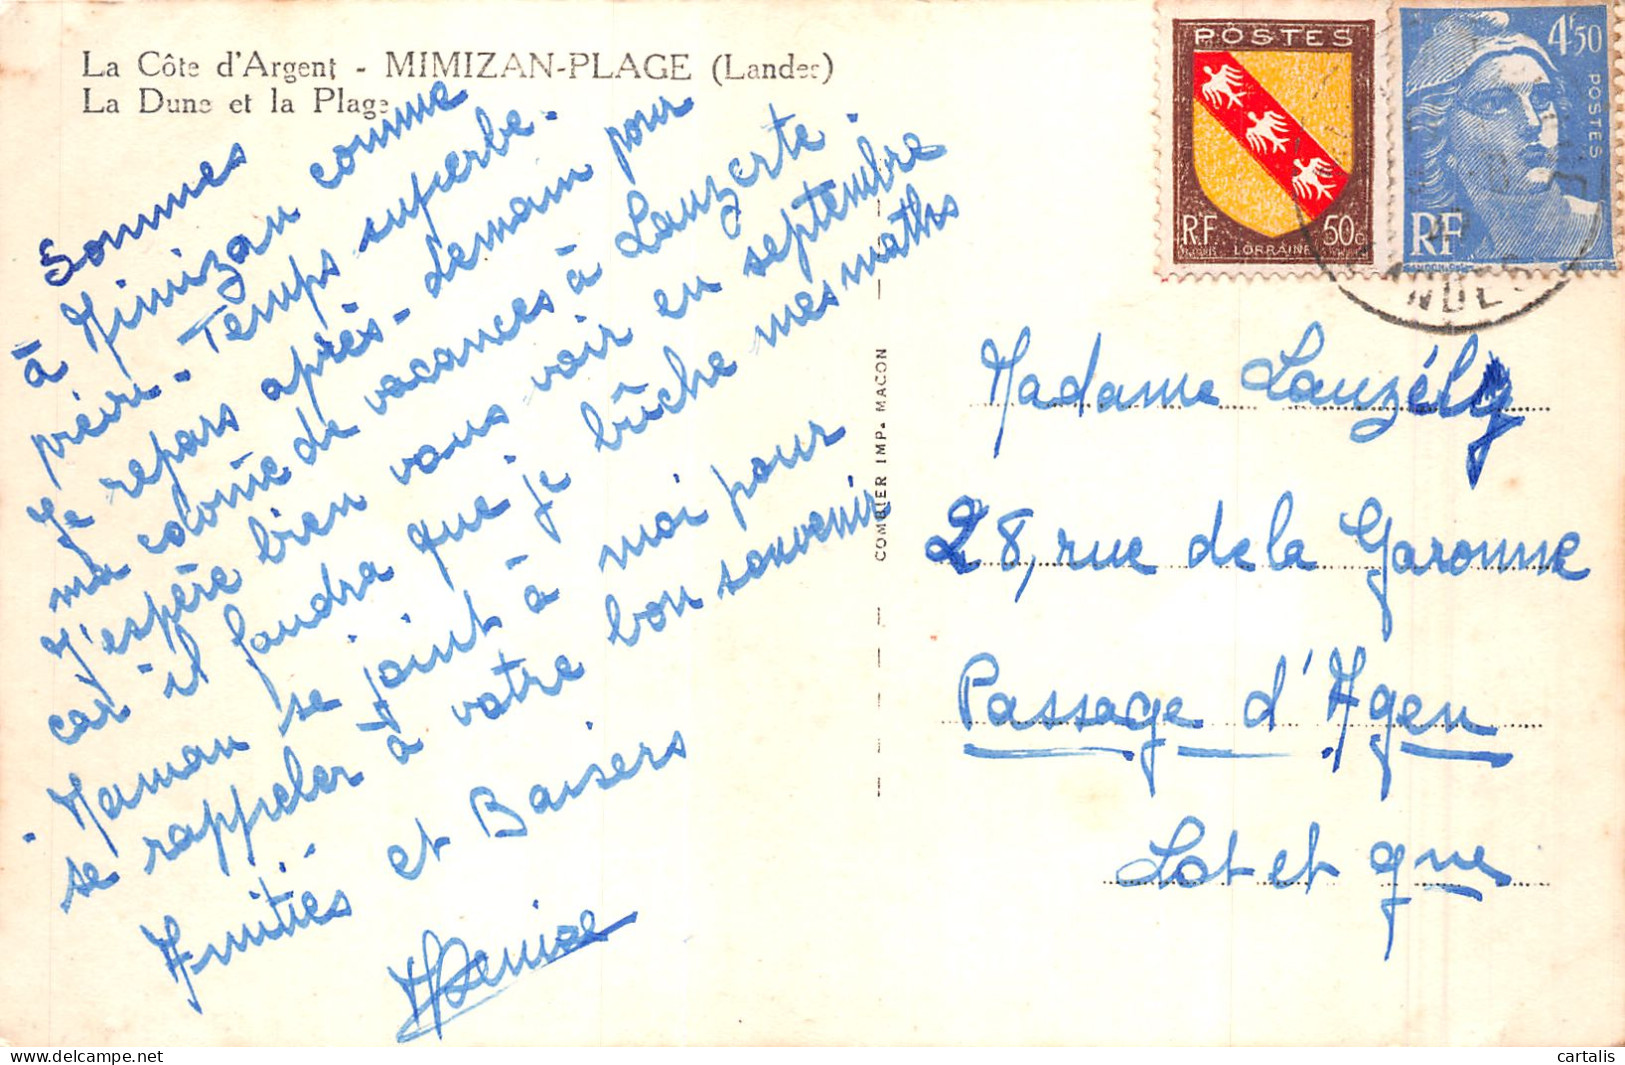 La Côte d'Argent - MIMIZAN-PLAGE (Landes)
La Dune et la Plage
Sommes
à Mimizan comme
prévu. Temps superbe.
Je repars après-demain pour
ma colonie de vacances à Lauzerte.
J'espère bien vous voir en septembre
car il faudra que je bûche mes maths
- Maman se joint à moi pour
se rappeler à votre bon souvenir
Amitiés et Baisers
COMBIER IMP. MACON
POSTES
RF
LORRAINE
50c
4F50
POSTES
RF
LANDES
Madame Lauzély
28, rue de la Garonne
Passage d'Agen
Lot et gne
delcampe.net
cartalis